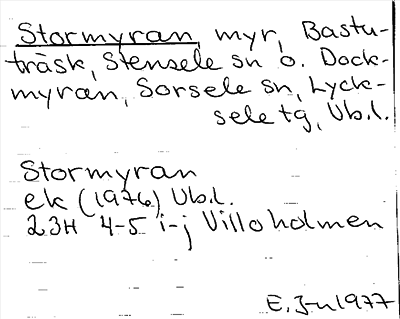 Stormyran, myr, Bastu-
träsk, Stensele sn o. Dock-
myran, Sorsele sn, Lyck-
sele tg, Vb.l.
Stormyran
ek (1976) Vb.l.
23H 4-5 i-j Villoholmen
E. J-n 1977